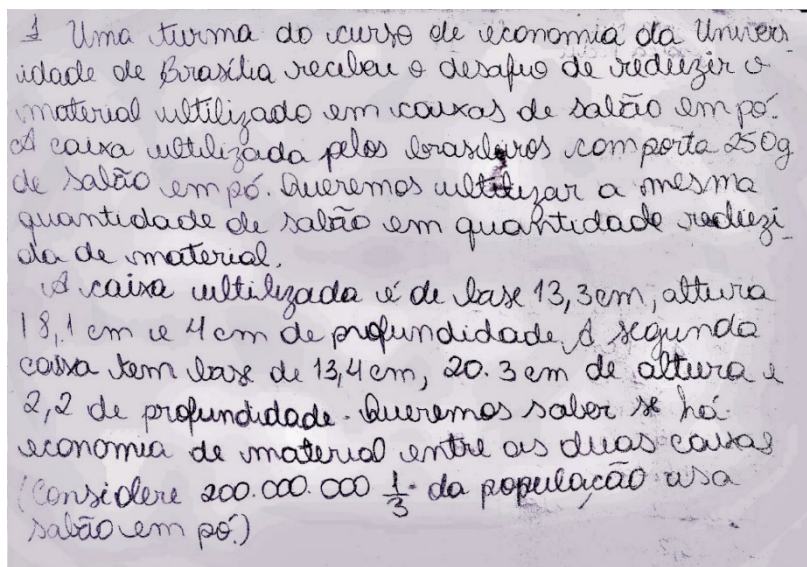 1 Uma turma do curso de economia da Univers
idade de Brasília recebeu o desafio de reduzir o
material ultilizado em caixas de sabão em pó.
A caixa ultilizada pelos brasileiros comporta 250g
de sabão em pó. Queremos ultilizar a mesma
quantidade de sabão em quantidade reduzi
da de material.
A caixa ultilizada é de base 13,3cm, altura
18,1 cm e 4 cm de profundidade, A segunda
caixa tem base de 13,4 cm, 20.3 cm de altura e
2,2 de profundidade. Queremos saber se há
economia de material entre as duas caixas
(Considere 200.000.000 1/3 da população usa
sabão em pó.)